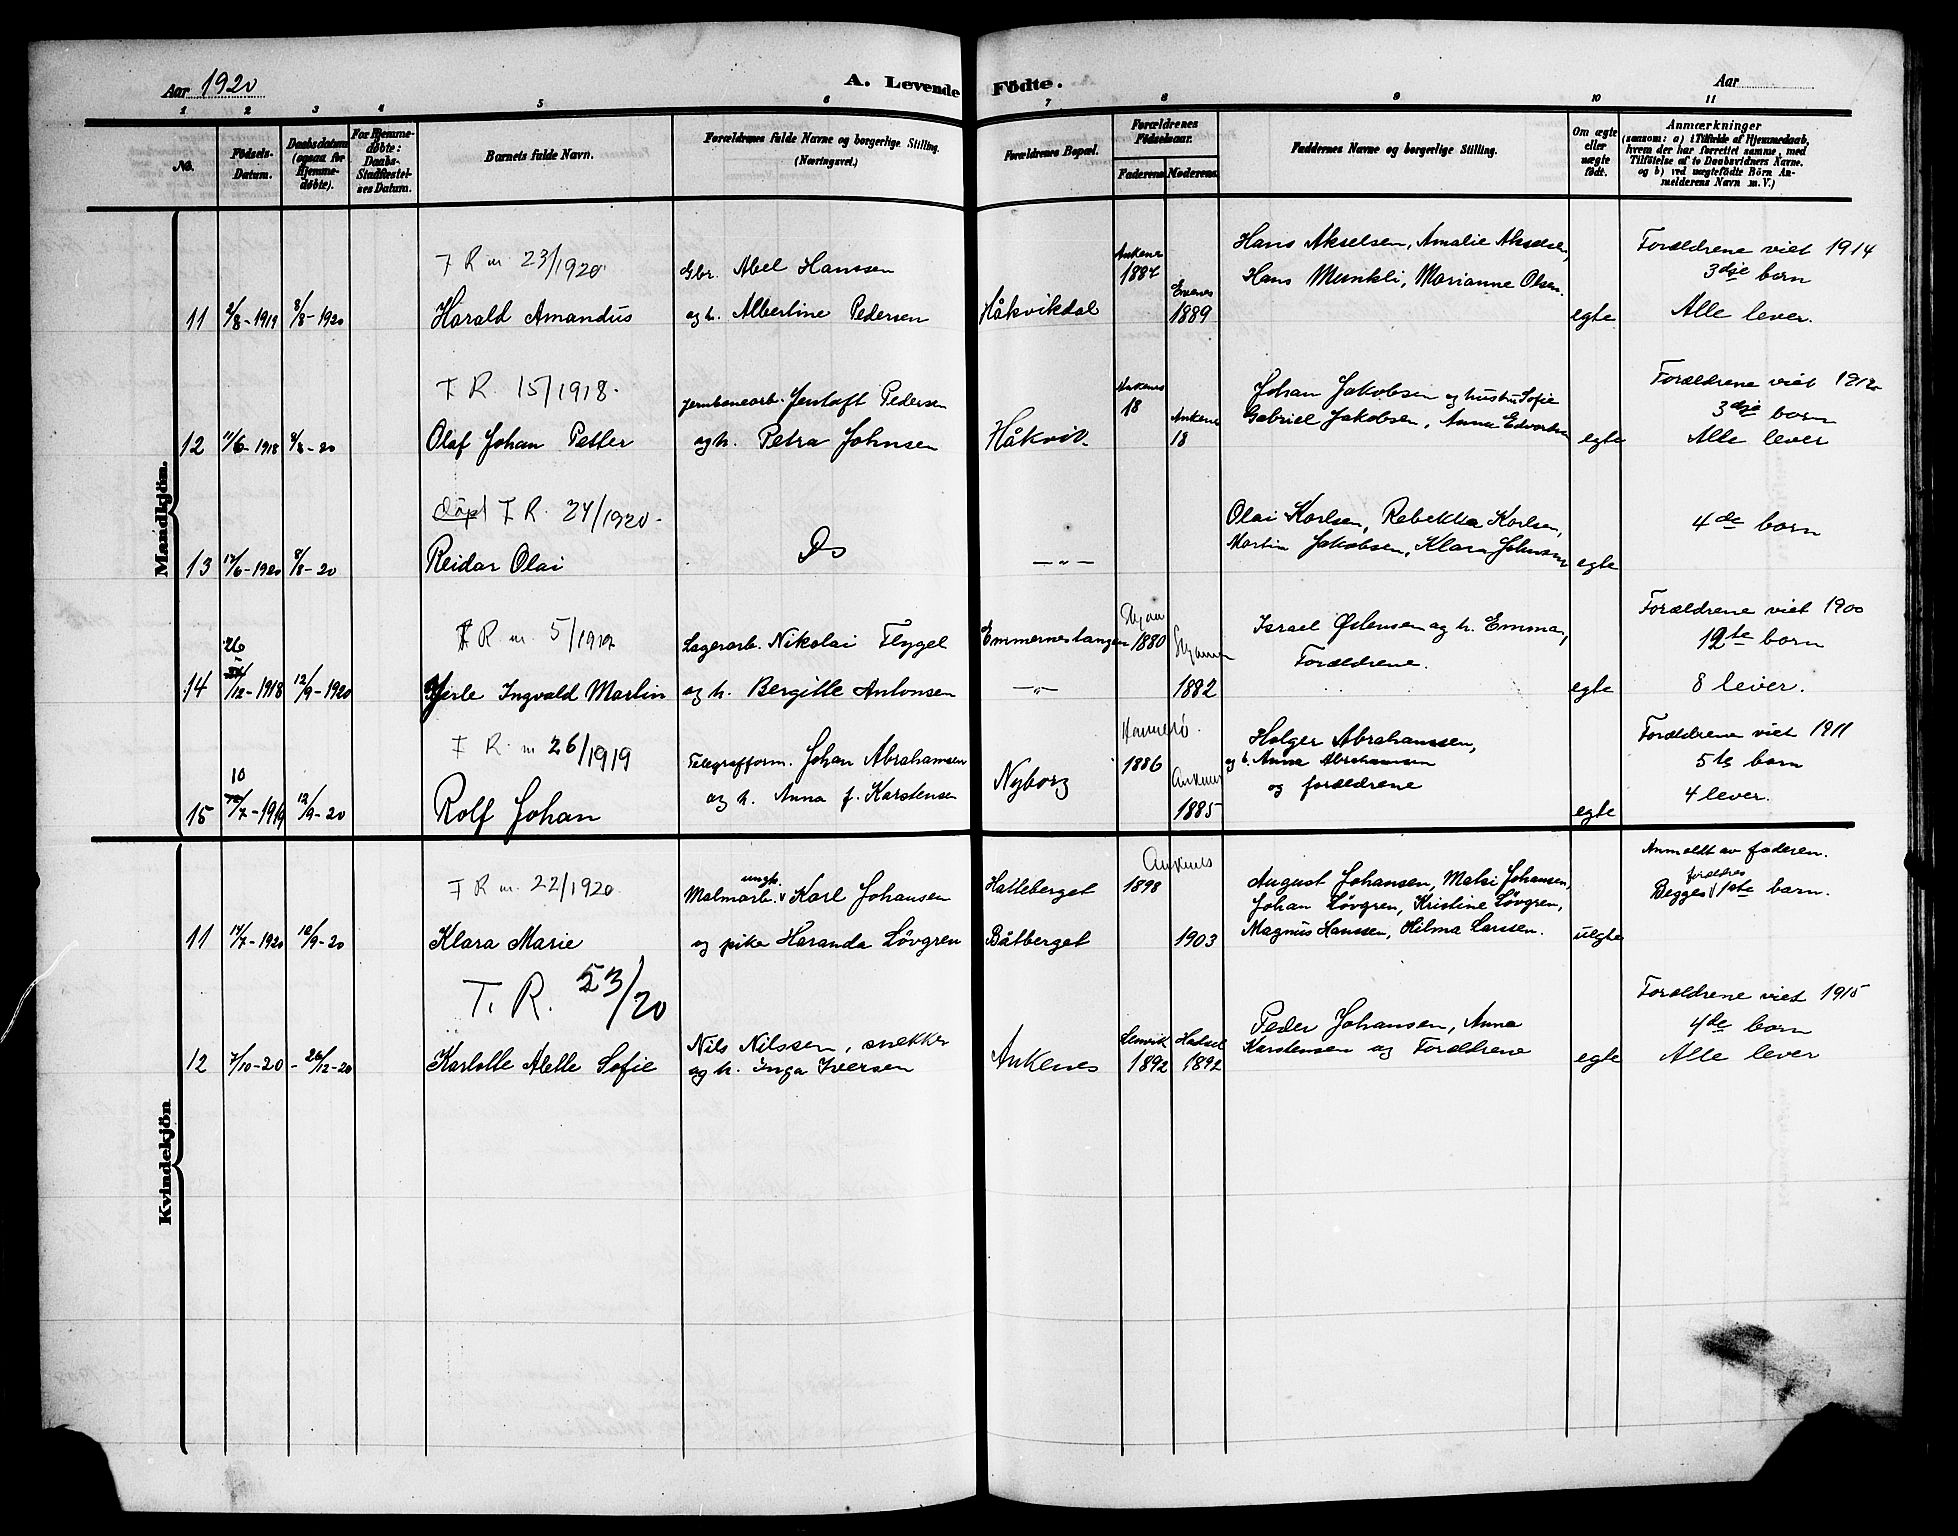 Aar 1920
A. Levende Födte.
Aar
1 2 3 4 5 6 7 8 9 10 11
No.
Födsels-Datum.
Daabsdatum (ogsaa for Hjemme-døbte).
For Hjemme-døbte: Daabs-Stadfæstel-ses Datum.
Barnets fulde Navn.
Forældrenes fulde Navne og borgerlige Stilling.
(Næringsvei.)
Forældrenes Bopæl.
Forældrenes Födselsaar.
Faderens Moderens
Faddernes Navne og borgerlige Stilling.
Om ægte eller uægte født.
Anmærkninger
(saasom: a) i Tilfælde af Hjemmedaab, hvem der har forrettet samme, med Tilföielse af to Daabsvidners Navne. og b) ved uægtefödte Börn An-melderens Navn m. V.)
Mandkjön.
F R nr 23/1920
Gbr. Abel Hanssen
Ankenes 1884
Hans Akselsen, Amalie Akselsen,
Hans Munkli, Marianne Olsen.
Forældrene viet 1914
3dje barn
11 2/8-1919 8/8-1920 Harald Amandus og h. Albertine Pedersen Håkvikdal Evenes 1889 egte Alle lever.
F R. 15/1918
Jernbanearb. Jentoft Pedersen
Ankenes 18
Johan Jakobsen og hustru Sofie
Gabriel Jakobsen, Anna
Forældrene viet 1912
3dje barn
12 11/6-1918 8/8-20 Olaf Johan Petter og h. Petra Johnsen Håkvik Ankenes 18 egte Alle lever
døpt F R. 24/1920
Olai Karlsen, Rebekka Karlsen,
Martin Jakobsen, Klara Johnsen
4de barn
13 17/6-1920 8/8-20 Reidar Olai Ds -"- egte
F R nr 5/1919
Lagerarb. Nikolai Flygel
Emmernestangen 1880
Israel Østensen og h. Emma,
Forældrene.
Forældrene viet 1900
12te barn
14 26/12-1918 12/9-1920 Jerle Ingvald Martin og h. Bergitte Antonsen -"- 1882 egte 8 lever.
F R. nr 26/1919
Telegrafform. Johan Abrahamsen
Hammerø 1886
Holger Abrahamsen,
og h. Anna Abrahamsen
og forældrene
Forældrene viet 1911
5te barn
4 lever.
15 10/7-1919 12/9-20 Rolf Johan og h. Anna f. Karstensen Nyborg Ankenes 1885 egte
Kvindekjön
F R nr. 22/1920
Malmarb. ungk. Karl Johansen
Hatteberget Ankenes 1898
August Johansen, Matsi Johansen,
Johan Løvgren, Kristine Løvgren,
Magnus Hanssen, Hilma Larssen.
Anmeldt av faderen.
Begges foreldres 1ste barn.
11 14/7-1920 12/9-20 Klara Marie og pike Haranda Løvgren Båtberget 1903 uegte
F. R. 53/20
Nils Nilssen, snekker
Lenvik 1892
Hadsel 1892
Peder Johansen, Anna
Karstensen og Forældrene
Forældrene viet 1915
4de barn
12 7/10-20 26/12-20 Karlotte Alette Sofie og h. Inga Iversen Ankenes egte Alle lever